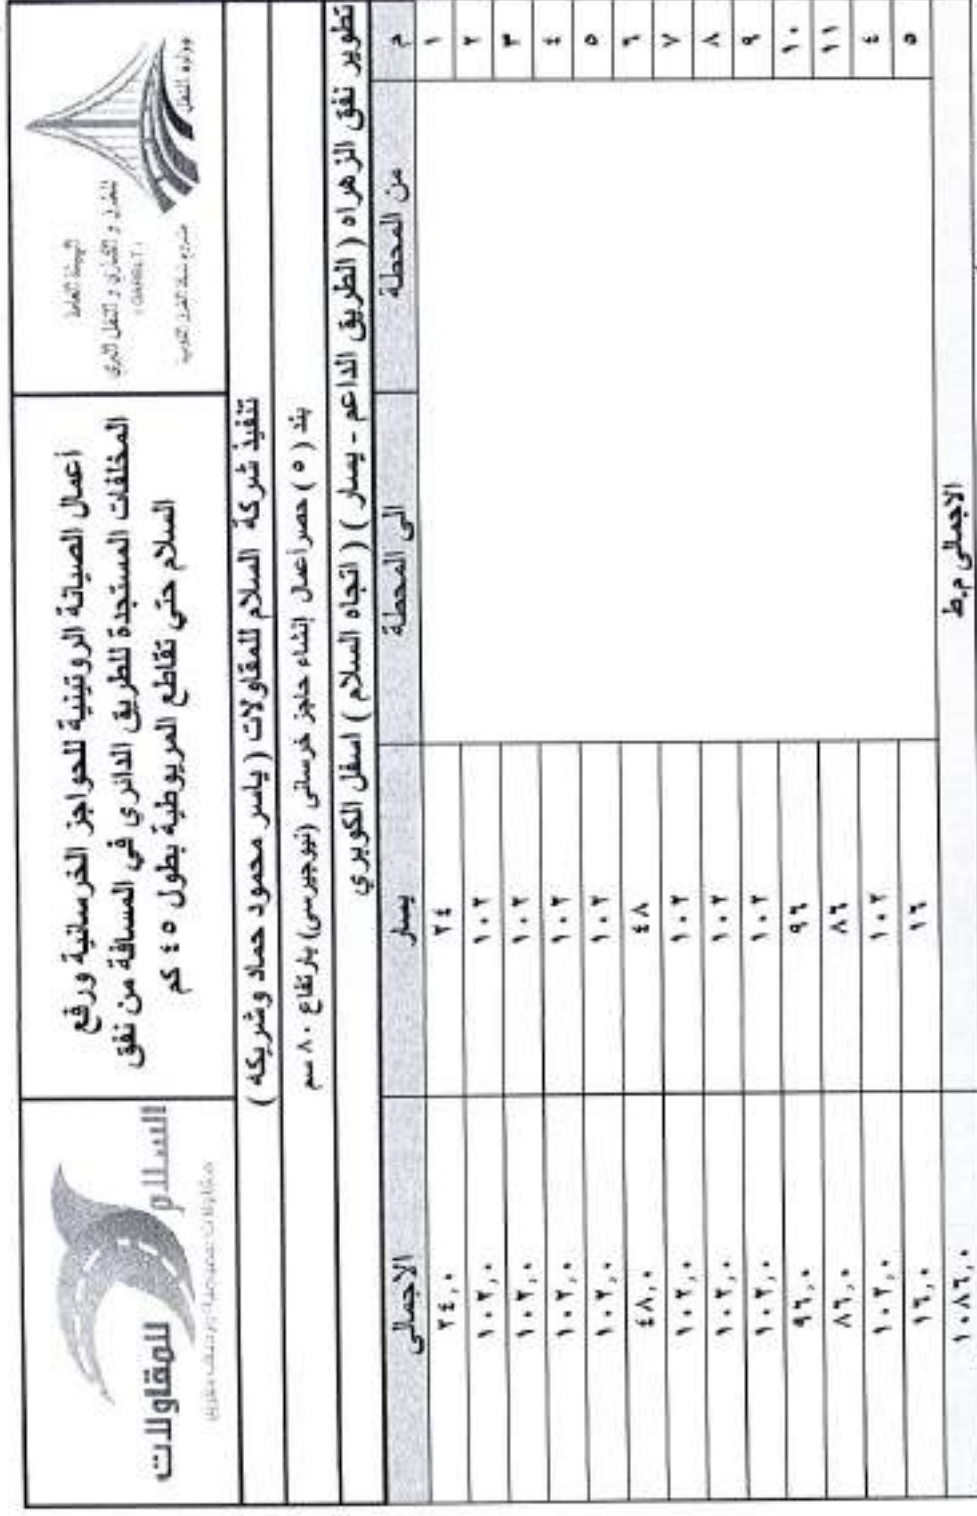 وزارة النقل
الهيئة العامة
للطرق و الكباري و النقل البري
(GARBLT)
أعمال الصيانة الروتينية للحواجز الخرسانية ورفع
المخلفات المستجدة للطريق الدائري في المسافة من نفق
السلام حتي تقاطع المريوطية بطول ٤٥ كم
السلام
للمقاولات
تنفيذ شركة السلام للمقاولات ( ياسر محمود حماد وشريكه )
بند ( ٥ ) حصر أعمال إنشاء حاجز خرساني (نيوجيرسي) بارتفاع ٨٠ سم
تطوير نفق الزهراه ( الطريق الداعم - يسار ) ( اتجاه السلام ) اسفل الكوبري
م من المحطة الى المحطة يسار الاجمالى
١ ٢٤ ٢٤,٠
٢ ١٠٢ ١٠٢,٠
٣ ١٠٢ ١٠٢,٠
٤ ١٠٢ ١٠٢,٠
٥ ١٠٢ ١٠٢,٠
٦ ٤٨ ٤٨,٠
٧ ١٠٢ ١٠٢,٠
٨ ١٠٢ ١٠٢,٠
٩ ١٠٢ ١٠٢,٠
١٠ ٩٦ ٩٦,٠
١١ ٨٦ ٨٦,٠
٤ ١٠٢ ١٠٢,٠
٥ ١٦ ١٦,٠
الاجمالى م.ط ١٠٨٦,٠